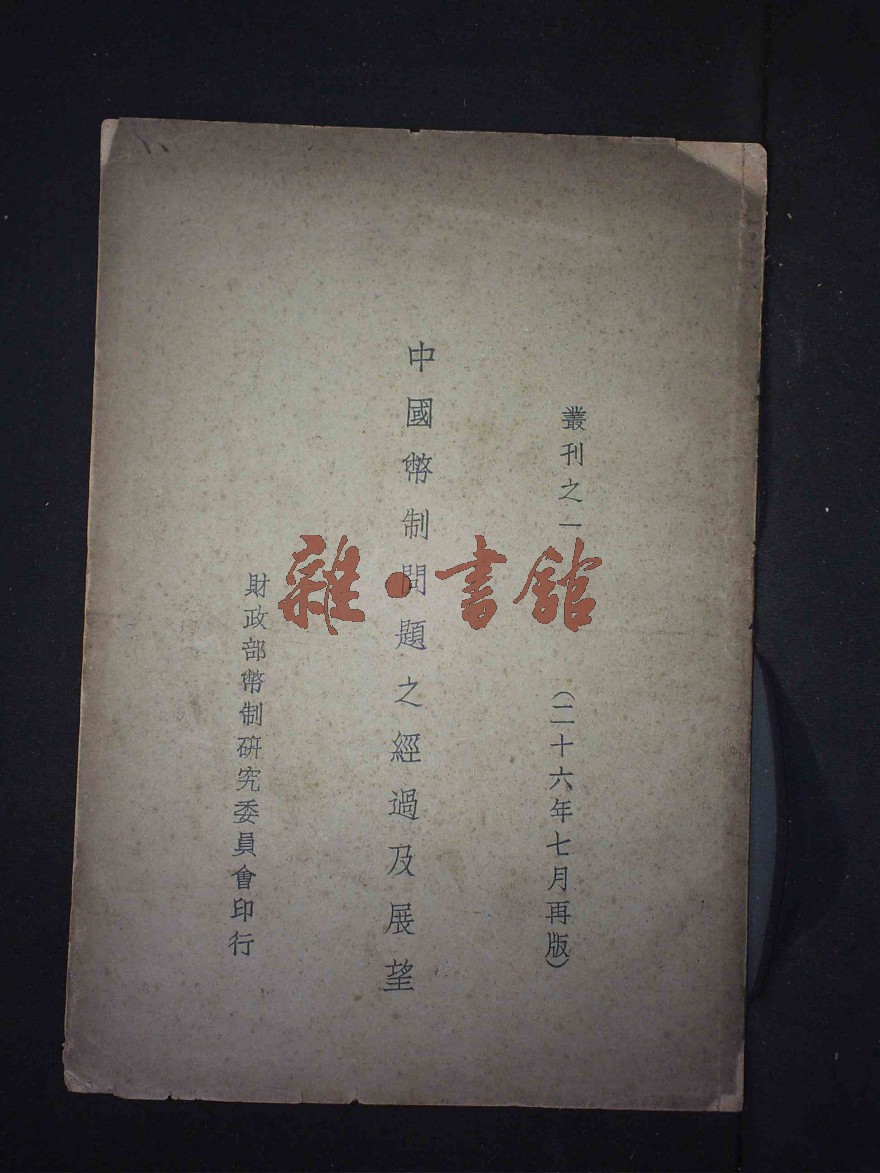 叢刊之一
（二十六年七月再版）
中國幣制問題之經過及展望
財政部幣制研究委員會印行
雜·書館